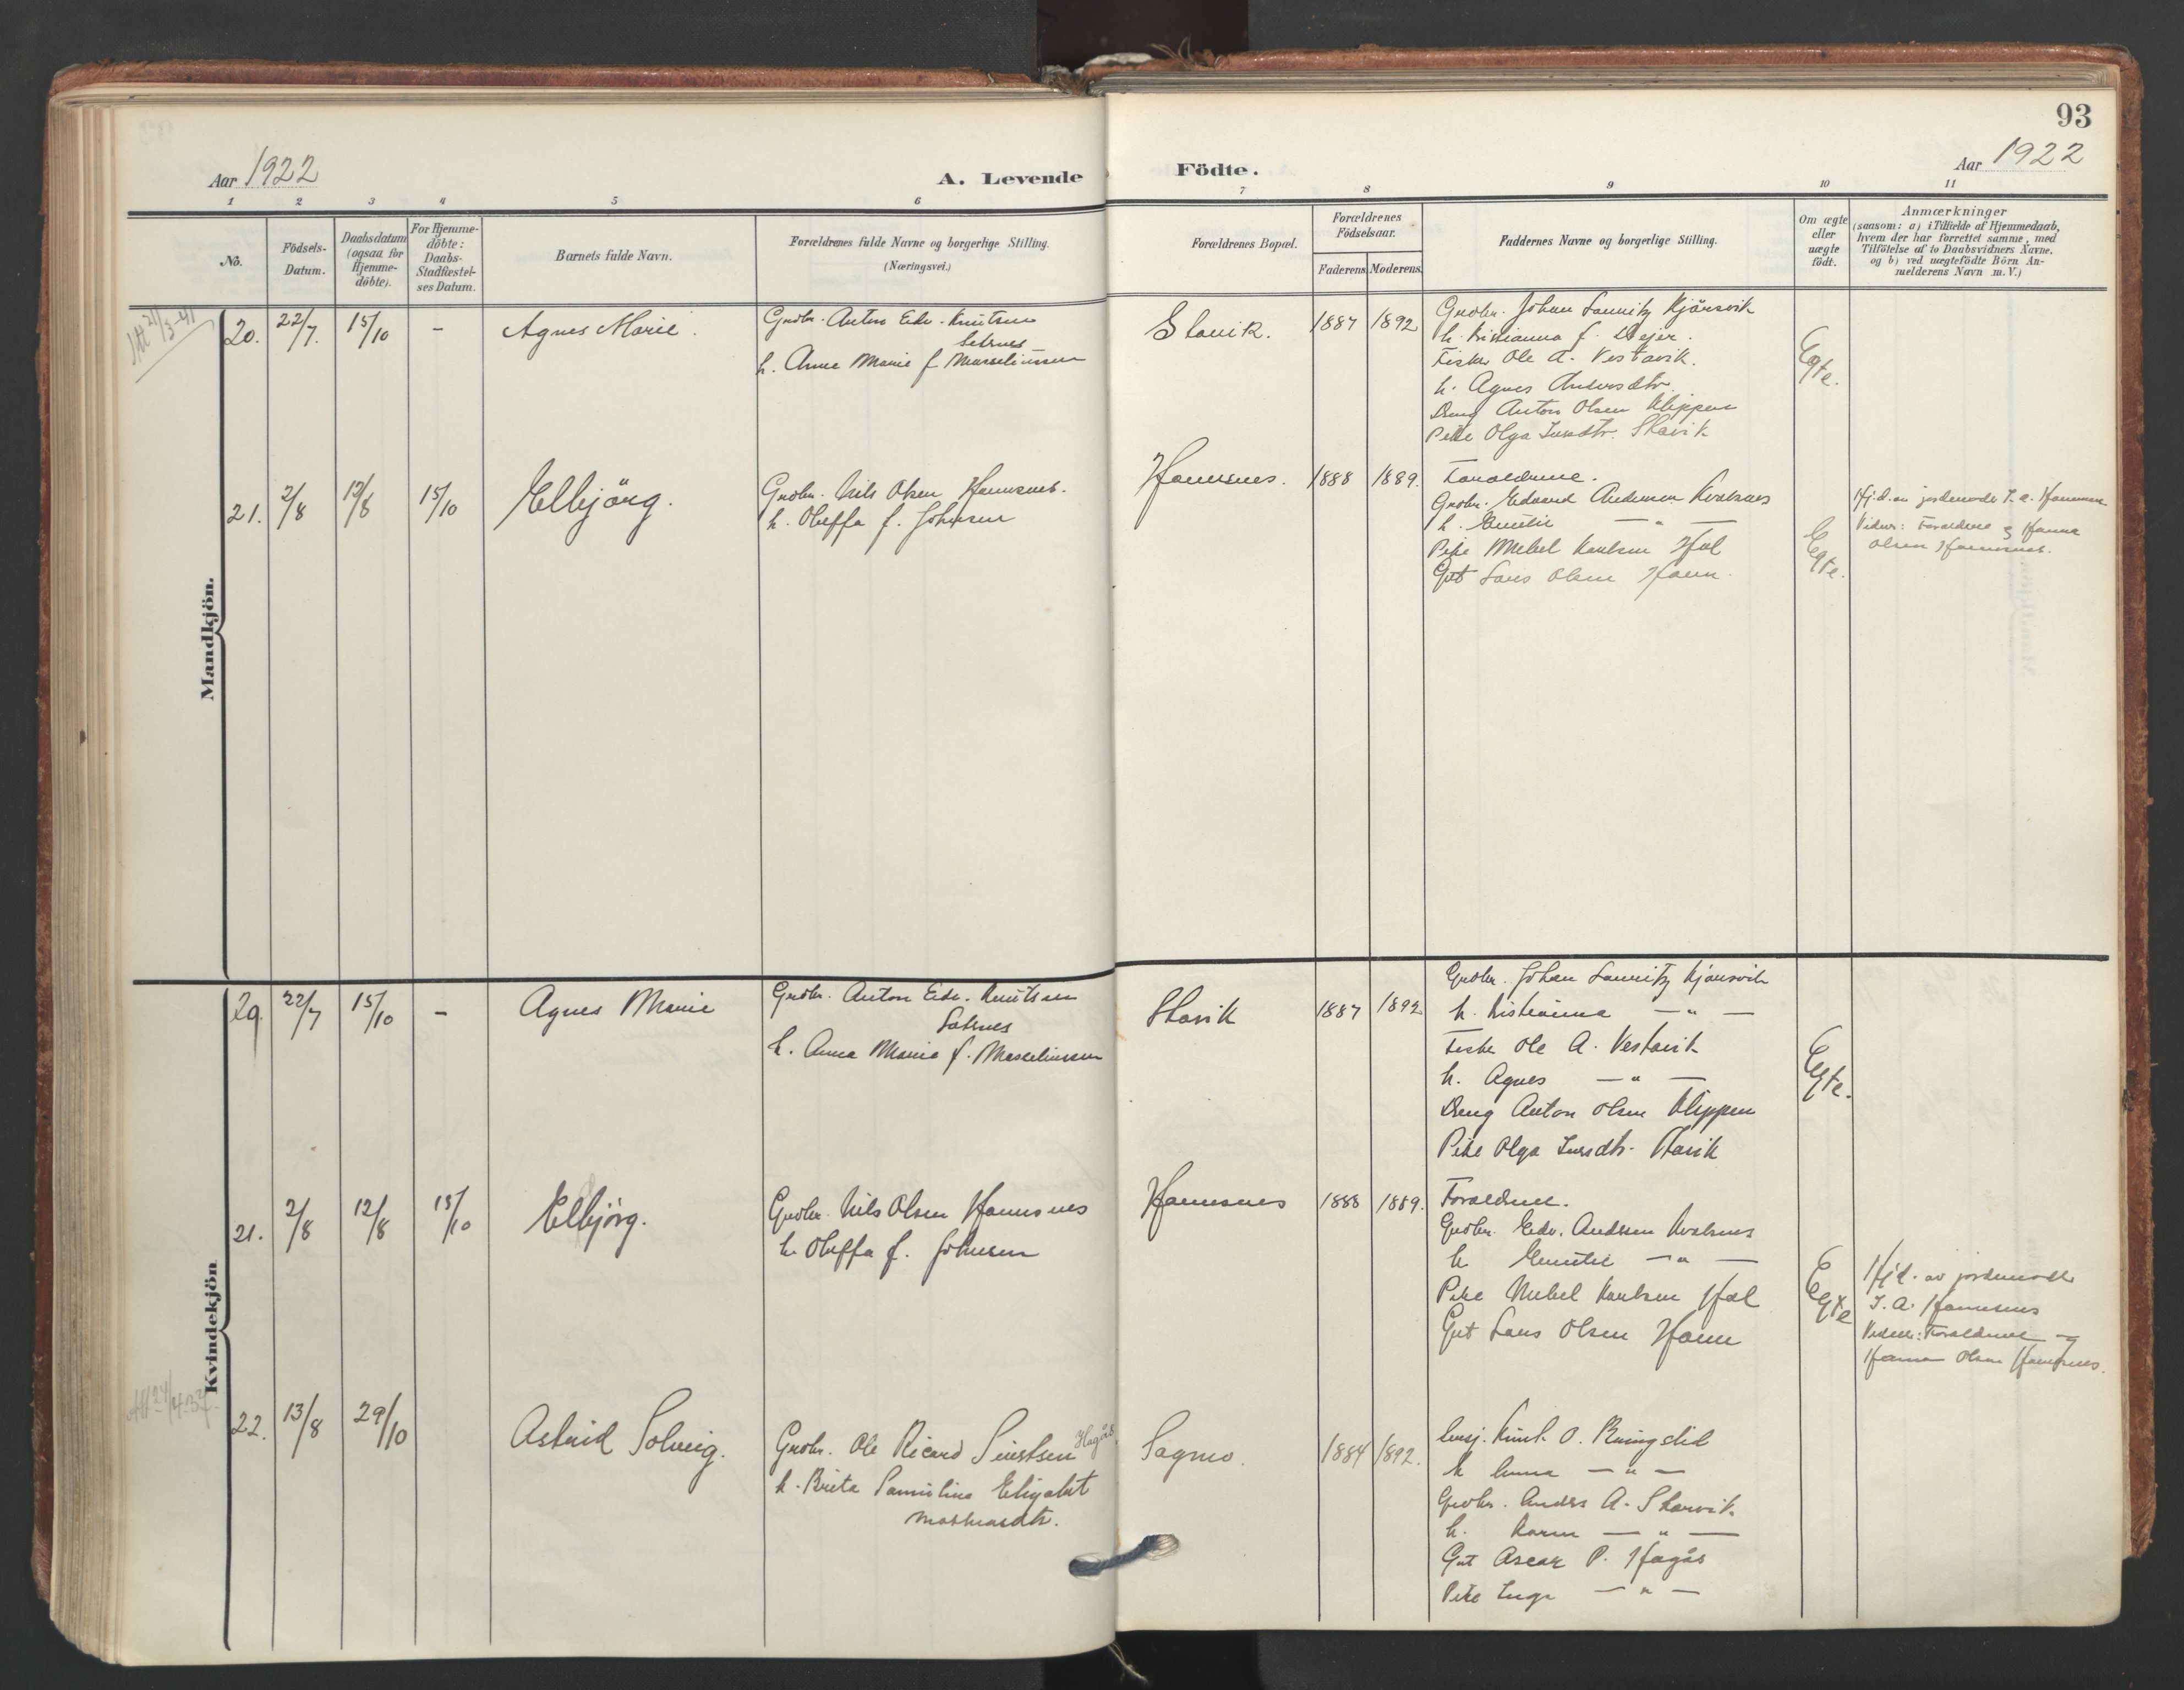 93
Aar 1922
A. Levende
Födte.
Aar 1922
1 2 3 4 5 6 7 8 9 10 11
No.
Födsels-
Datum.
Daabsdatum
(ogsaa for
Hjemme-
döbte).
For Hjemme-
döbte:
Daabs-
Stadfæstel-
ses Datum.
Barnets fulde Navn.
Forældrenes fulde Navne og borgerlige Stilling.
(Næringsvei.)
Forældrenes Bopæl.
Forældrenes
Födselsaar.
Faderens Moderens
Faddernes Navne og borgerlige Stilling.
Om ægte
eller
uægte
födt.
Anmærkninger
(saasom: a) i Tilfælde af Hjemmedaab,
hvem der har forrettet samme, med
Tilföielse af to Daabsvidners Navne.
og b) ved uægtefödte Börn An-
melderens Navn m. V.)
Mandkjön.
20. 22/7. 15/10 - Agnes Marie.
Grdbr. Anton Edv. Knutsen
h. Anna Marie f. Marselinssen
Slavik. 1887 1892
Grdbr. Johan Lauritz Kjörsvik
h. Kristianna f.
Fisker Ole A. Vestavik.
h. Agnes Andersdtr.
Dreng Anton Olsen Klippen
Pike Olga Slavik
Egte.
21. 2/8 12/8 15/10 Elbjörg.
Grdbr. Nils Olsen Hamsnes.
h. Oleffa f. Johnsen
Hamsnes. 1888 1889.
Foraeldrene.
Grdbr. Edvard Andersen Kvalsnes
h. Emilie — " —
Pike Mebel Karlsen Hol
Gut Lars Olsen Hamn.
Egte.
Hj.d. av jordemodr J. A. Hamsnes
Vidner: Foraeldrene og Hanna
Olsen Hamsnes.
Kvindekjön
20. 22/7 15/10 - Agnes Marie
Grdbr. Anton Edv. Knutsen
h. Anna Marie f. Marselinssen
Slavik 1887 1892
Grdbr. Johan Lauritz Kjörsvik
h. Kristianna — " —
Fisker Ole A. Vestavik
h. Agnes — " —
Dreng Anton Olsen Klippen
Pike Olga Slavik
Egte.
21. 2/8 12/8 15/10 Elbjörg.
Grdbr. Nils Olsen Hamsnes
h. Oleffa f. Johnsen
Hamsnes 1888 1889.
Foraeldrene.
Grdbr. Edv. Andersen Kvalsnes
h Emilie — " —
Pike Mebel Karlsen Hol
Gut Lars Olsen Hamn
Egte
Hj.d. av jordemodr
J. A. Hamsnes
Vidner: Foraeldrene og
Hanna Olsen Hamsnes.
22. 13/8 29/10 Astrid Solveig.
Grdbr. Ole Ricard Sivertsen Hagås
h. Brita Pauneline Elisabet
Mathiasdtr.
Sagmo. 1884 1892.
h Anna — " —
Grdbr. Anders A. Skarvik
h. Karen — " —
Gut Oscar P. Hagås
Pike Inga — " —